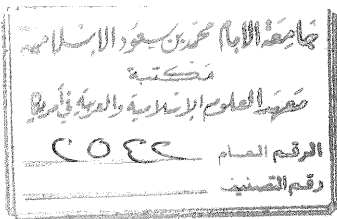 جامعة الإمام محمد بن سعود الإسلامية
مكتبة
معهد العلوم الإسلامية والعربية في أمريكا
الرقم العام ٢٥٤٢
رقم التصنيف